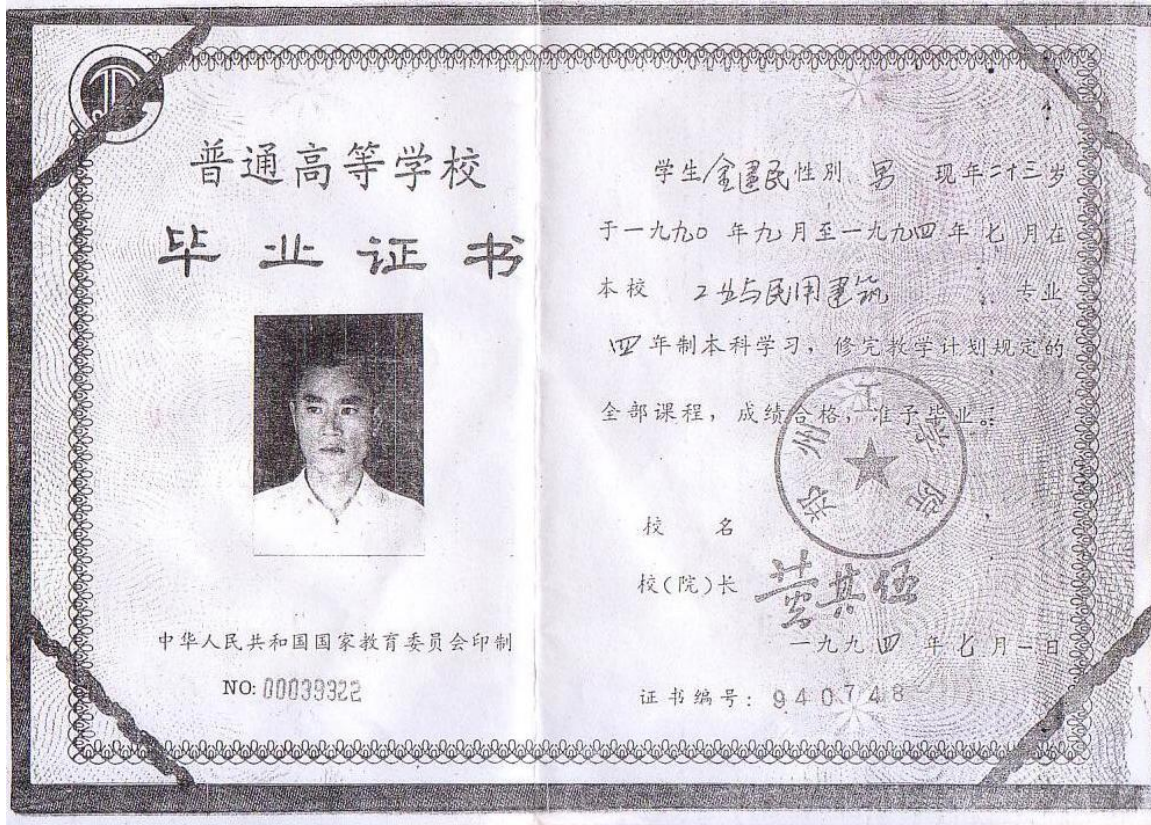 普通高等学校
毕业证书
中华人民共和国国家教育委员会印制
NO: 00039322
学生金建民性别 男 现年二十三岁
于一九九〇年九月至一九九四年七月在
本校 工业与民用建筑 专业
四年制本科学习，修完教学计划规定的
全部课程，成绩合格，准予毕业。
郑州工学院
校 名
校(院)长 黄其伍
一九九四年七月一日
证书编号：940748